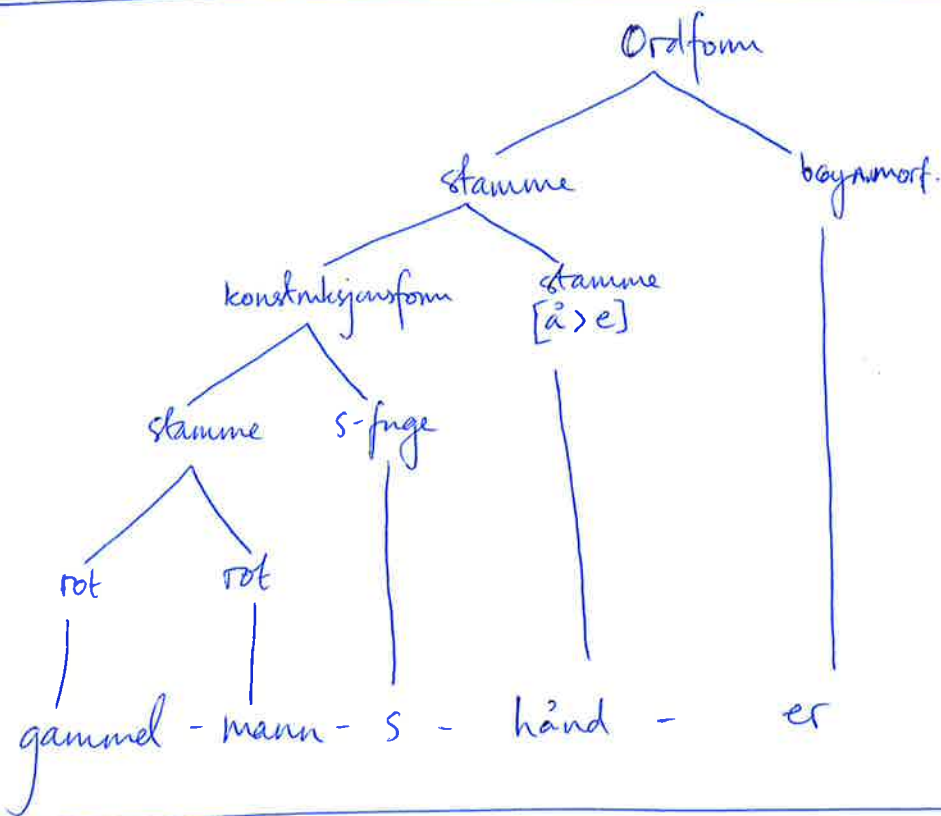 Ordform
stamme bøyn.morf.
konstruksjonsform stamme
[å > e]
stamme s-fuge
rot rot
gammel - mann - s - hånd - er